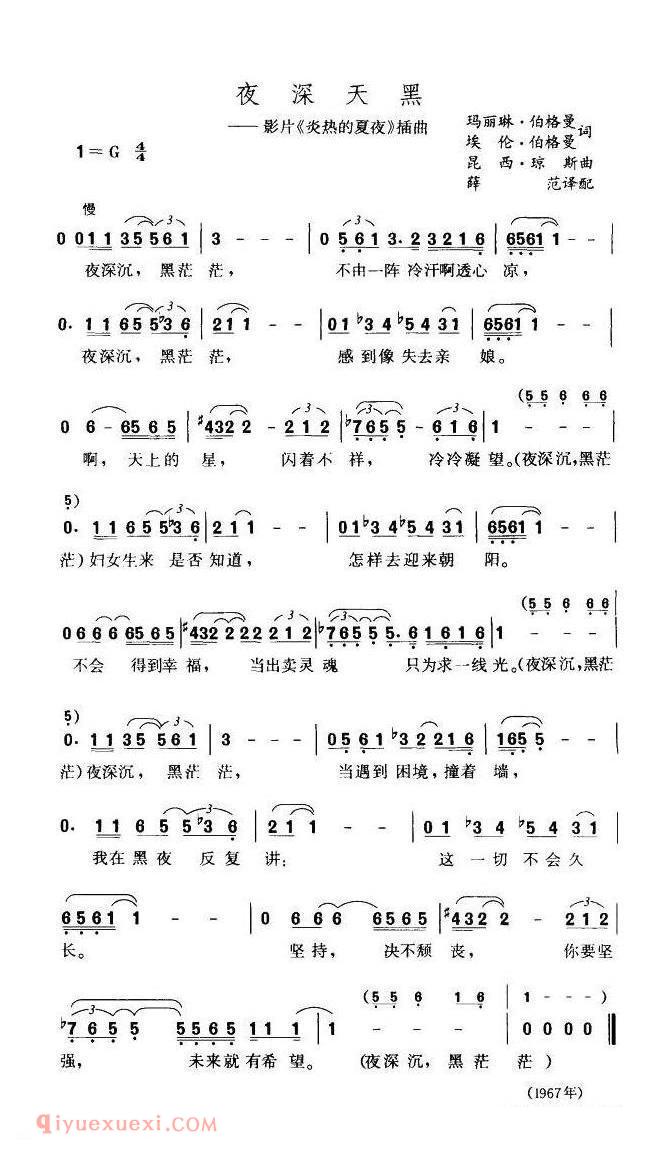 夜深天黑
——影片《炎热的夏夜》插曲
玛丽琳·伯格曼词
埃伦·伯格曼
昆西·琼斯曲
薛范译配
1=G 4/4
慢
0 011 35561 | 3 - - - | 0 561 3. 23216 | 65611 - - |
夜深沉，黑茫茫，不由一阵冷汗啊透心凉，
0. 11655♭36 | 211 - - | 01♭34♭5431 | 65611 - - |
夜深沉，黑茫茫，感到像失去亲娘。
(5 5 6 6 6
0 6 - 6565 | ♯4322 - 212 | ♭7655 - 616 | 1 - - -
啊，天上的星，闪着不祥，冷冷凝望。(夜深沉，黑茫
5)
0. 11655♭36 | 211 - - | 01♭34♭5431 | 65611 - - |
茫)妇女生来是否知道，怎样去迎来朝阳。
(5 5 6 6 6
0666 6565 | ♯4322 222 212 | ♭76555. 61616 | 1 - - -
不会得到幸福，当出卖灵魂只为求一线光。(夜深沉，黑茫
5)
0. 1135561 | 3 - - - | 0561♭32216 | 1655 - - |
茫)夜深沉，黑茫茫，当遇到困境，撞着墙，
0. 11655♭36 | 211 - - | 01♭34♭5431 |
我在黑夜反复讲：这一切不会久
65611 - - | 0 666 6565 | ♯4322 - 212 |
长。坚持，决不颓丧，你要坚
(5 5 6 1 6 | 1 - - - )
♭7655 5565 111 | 1 - - - | 0 0 0 0 ‖
强，未来就有希望。(夜深沉，黑茫茫)
(1967年)
qiyuexuexi.com®